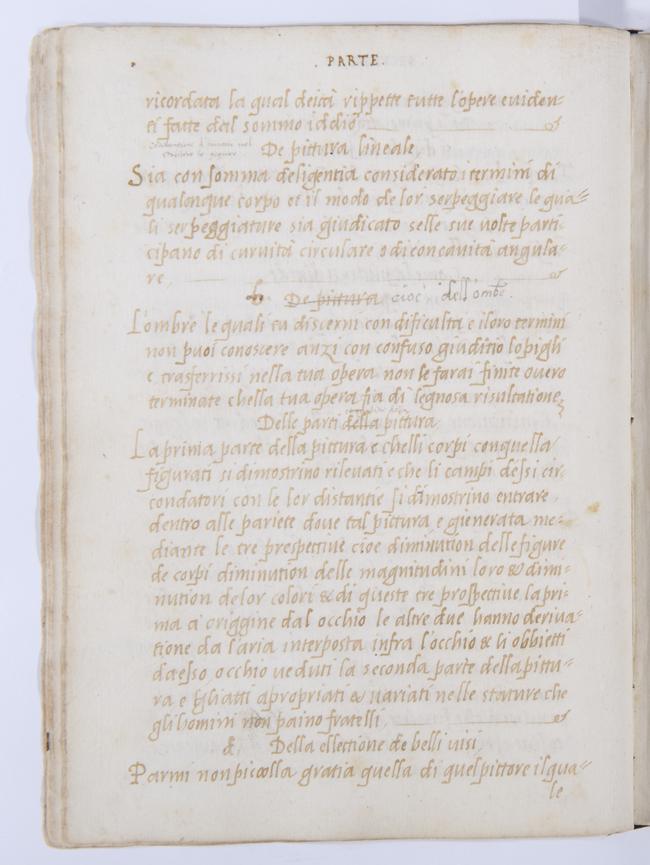 . PARTE .
ricordata la qual deità rippette tutte l'opere euiden-
ti fatte dal sommo iddio
De pittura lineale
Sia con somma deligentia considerato i termini di
qualonque corpo et il modo de lor serpeggiare le qua-
li serpeggiature sia giudicato selle sue volte parti-
cipano di curuità circulare o di concauità angula-
re,
De pittura cioè dell ombre
L'ombre le quali tu discerni con dificultà e i loro termini
non puoi conoscere anzi con confuso giuditio lo pigli
e trasferrissi nella tua opera non le farai finite ouero
terminate chella tua opera fia di legnosa risultatione,
Delle parti della pittura
La prima parte della pittura e chelli corpi con quella
figurati si dimostrino rileuati e che li campi dessi cir-
condatori con le lor distantie si dimostrino entrare
dentro alle pariete doue tal pittura e gienerata me-
diante le tre prespettiue cioe diminution delle figure
de corpi diminution delle magnitudini loro & dimi-
nution de lor colori & di queste tre prospettiue la pri-
ma a origgine dal occhio le altre due hanno deriua-
tione da l'aria interposta infra l'occhio & li obbietti
da esso occhio ueduti la seconda parte della pittu-
ra e gli atti apropriati & uariati nelle stature che
gli homini non paino fratelli
Della ellectione de belli uisi
Parmi non picolla gratia quella di quel pittore il qua-
le